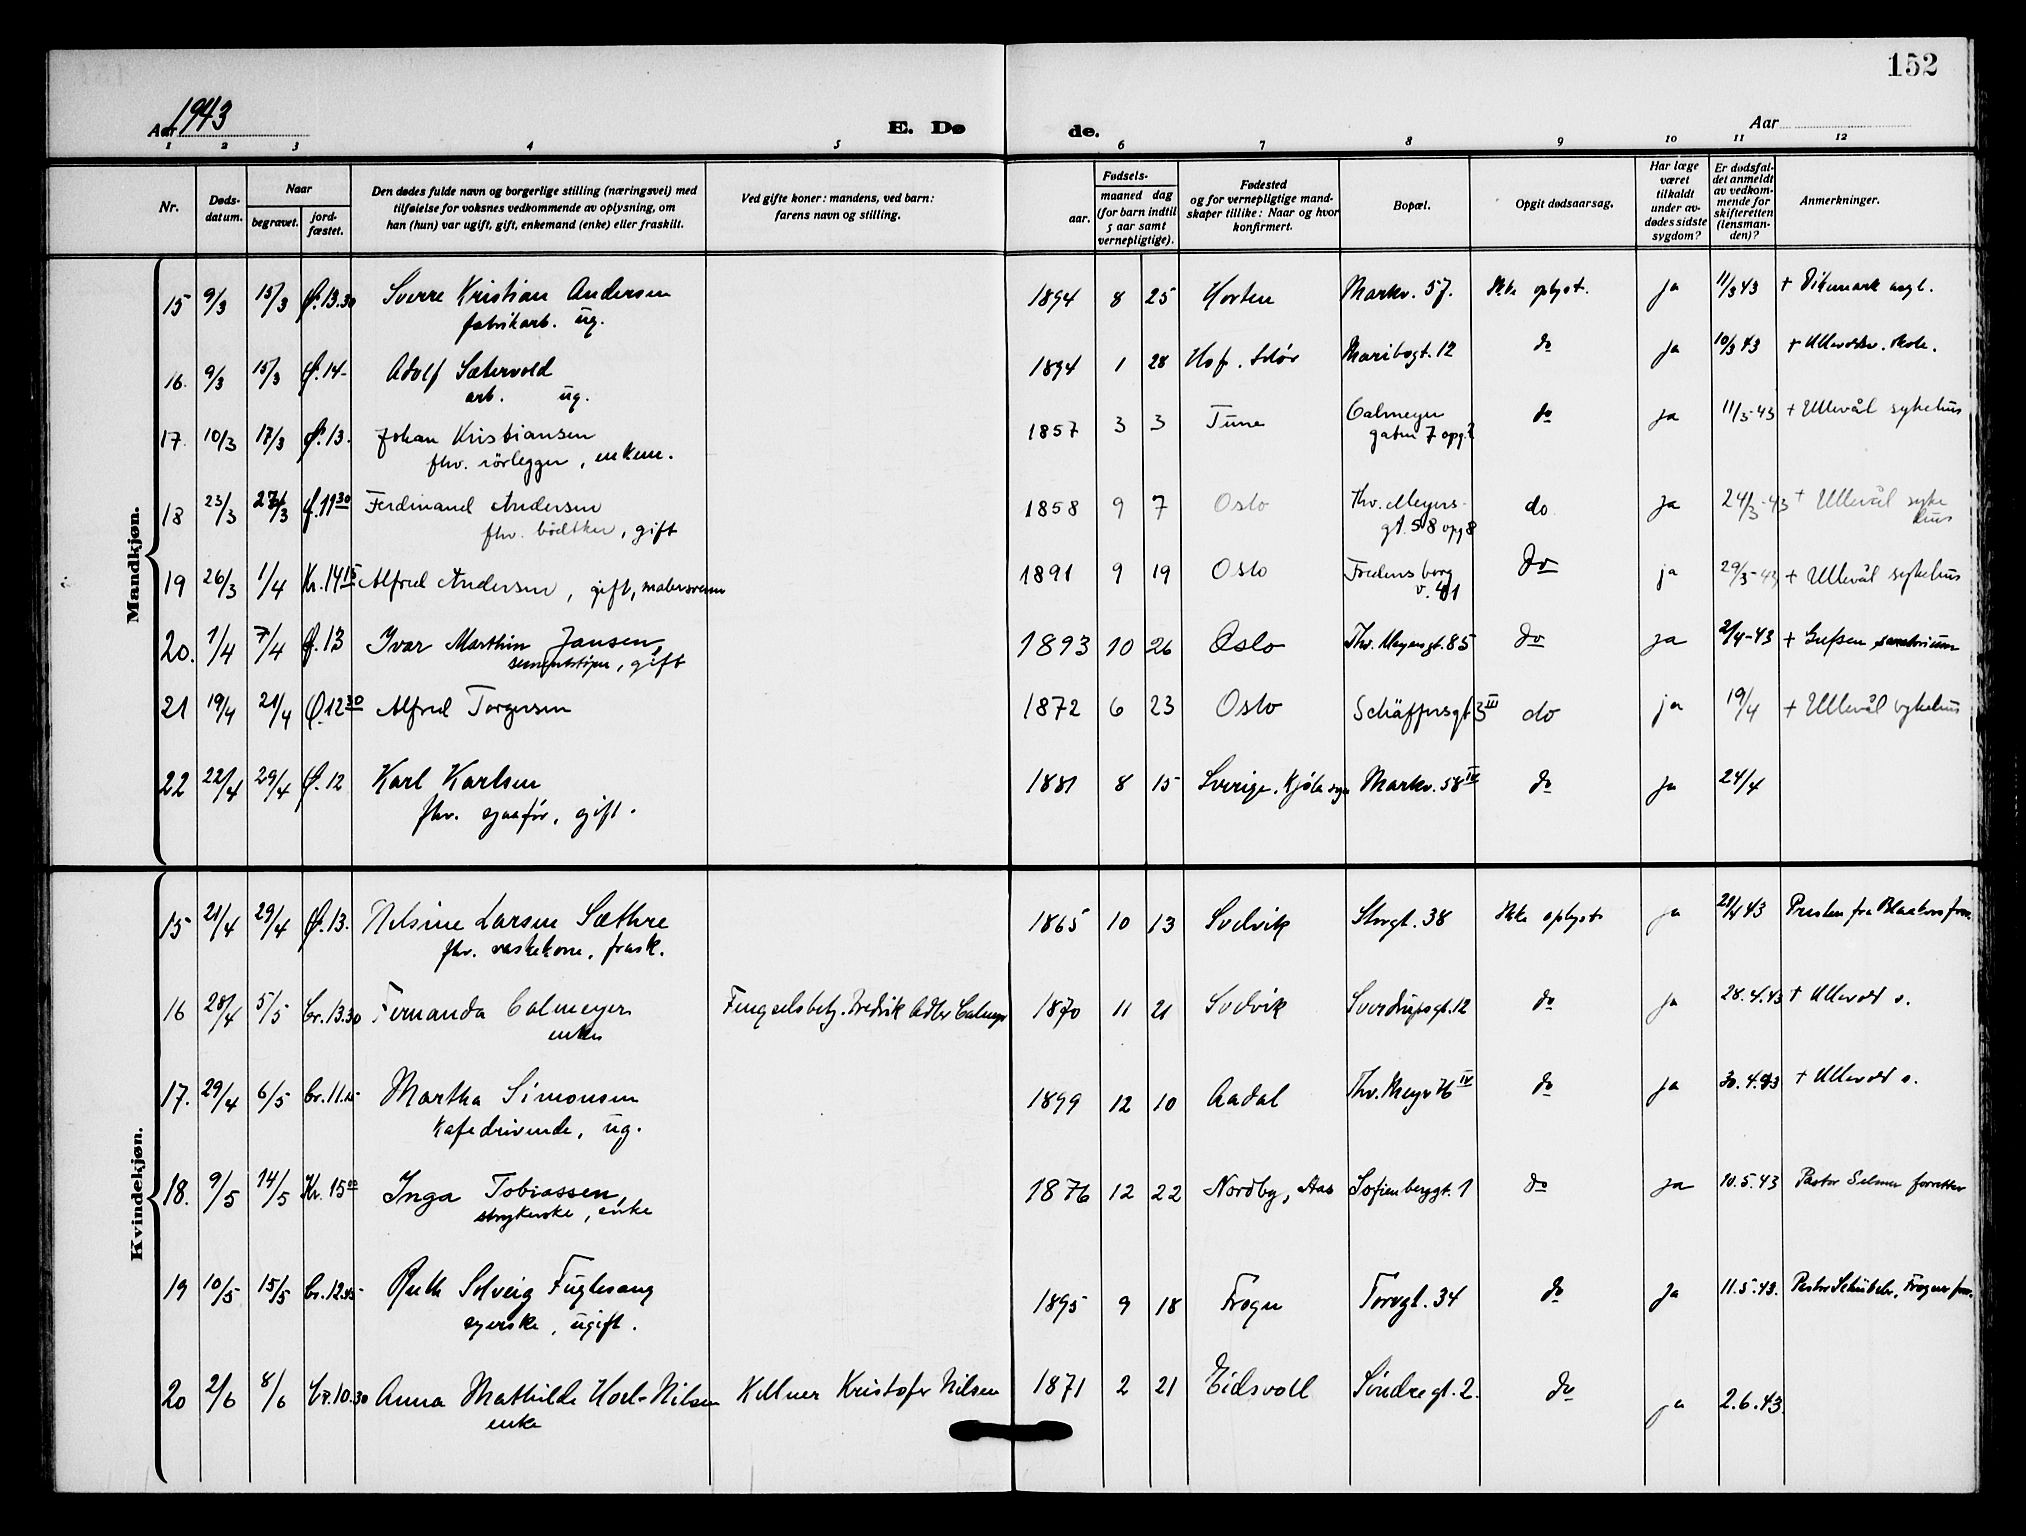 152
Aar 1943
E. Dø
de.
Aar
1 2 3 4 5 6 7 8 9 10 11 12
Nr.
Døds-
datum.
Naar
begravet.
jord-
fæstet.
Den dødes fulde navn og borgerlige stilling (næringsvei) med
tilføielse for voksnes vedkommende av oplysning, om
han (hun) var ugift, gift, enkemand (enke) eller fraskilt.
Ved gifte koner: mandens, ved barn:
farens navn og stilling.
Fødsels-
aar.
maaned dag
(for barn indtil
5 aar samt
vernepligtige).
Fødested
og for vernepligtige mand-
skaper tillike: Naar og hvor
konfirmert.
Bopæl.
Opgit dødsaarsag.
Har læge
været
tilkaldt
under av-
dødes sidste
sygdom?
Er dødsfal-
det anmeldt
av vedkom-
mende for
skifteretten
(lensman-
den)?
Anmerkninger.
Mandkjøn.
15 9/3 15/3 Ø.13.30 Sverre Kristian Andersen 1894 8 25 Horten Markv. 57. Ikke oplyst. ja 11/3 43 + Dikemark asyl.
fabrikarb. ug.
16. 9/3 15/3 Ø.14- Adolf Sætervold 1894 1 28 Hof, Solør Maribogt. 12 do ja 10/3 43
arb. ug.
17. 10/3 17/3 Ø.13. Johan Kristiansen 1857 3 3 Tune Calmeyer do ja 11/3-43 + Ullevål sykehus
gaten 7 opg. 2
fhv. rörlegger, enkem.
18 23/3 27/3 Ø.11 30 Ferdinand Andersen 1858 9 7 Oslo Thv. Meyers- do ja 24/3-43 + Ullevål syke
gt. 58 opg 8 hus
fhv. bödtker, gift
19 26/3 1/4 Kr.14 15 Alfred Andersen, gift, malersvenn 1891 9 19 Oslo Fredensborg do ja 29/3-43 + Ullevål sykehus
20. 1/4 7/4 Ø.13 Ivar Marthin Jansen, 1893 10 26 Oslo Thv. Meyersgt. 85 do ja 2/4-43 + Grefsen sanatorium
sementstöper, gift
21 19/4 21/4 Ø.12 30 Alfred Torgersen 1872 6 23 Oslo Schäffersgt 3 III do ja 19/4 + Ullevål sykehus
22 22/4 29/4 Ø.12 Karl Karlsen 1881 8 15 Sverige. Markv. 58 IV do ja 24/4
fhv. sjaafør, gift.
Kvindekjøn.
15 21/4 29/4 Ø.13. Nilsine Larsen Sæthre 1865 10 13 Svelvik Storgt. 38 Ikke oplyst ja 21/4 43 Presten fra
fhv. vaskekone, frask.
16 28/4 5/5 Cr.13.30 Fernanda Calmeyer Fengselsbetj. Fredrik Adler Calmeyer 1870 11 21 Svelvik Sverdrupsgt. 12 do ja 28.4.43 + Ullevål s.
enke
17. 29/4 6/5 Cr.11.15 Martha Simonsen 1899 12 10 Aadal Thv. Meyer 76 IV do ja 30.4.43 + Ullevål s.
Kafedrivende, ug.
18. 9/5 14/5 Kr.15 00 Inga Tobiassen, 1876 12 22 Nordby, Aas Sofienberggt. 1 do ja 10.5.43 Pastor Selmer forretter
strykerske, enke
19 10/5 15/5 Cr.12.45 Ruth Solveig Fuglesang 1895 9 18 Frogn Torvgt. 34 do ja 11.5.43. Pastor Schübeler, Frogner
syerske, ugift.
20 2/6 8/6 Cr.10.30 Anna Mathilde Nilsen Kellner Kristofer Nilsen 1871 2 21 Eidsvoll Söndregt. 2. do ja 2.6.43.
enke